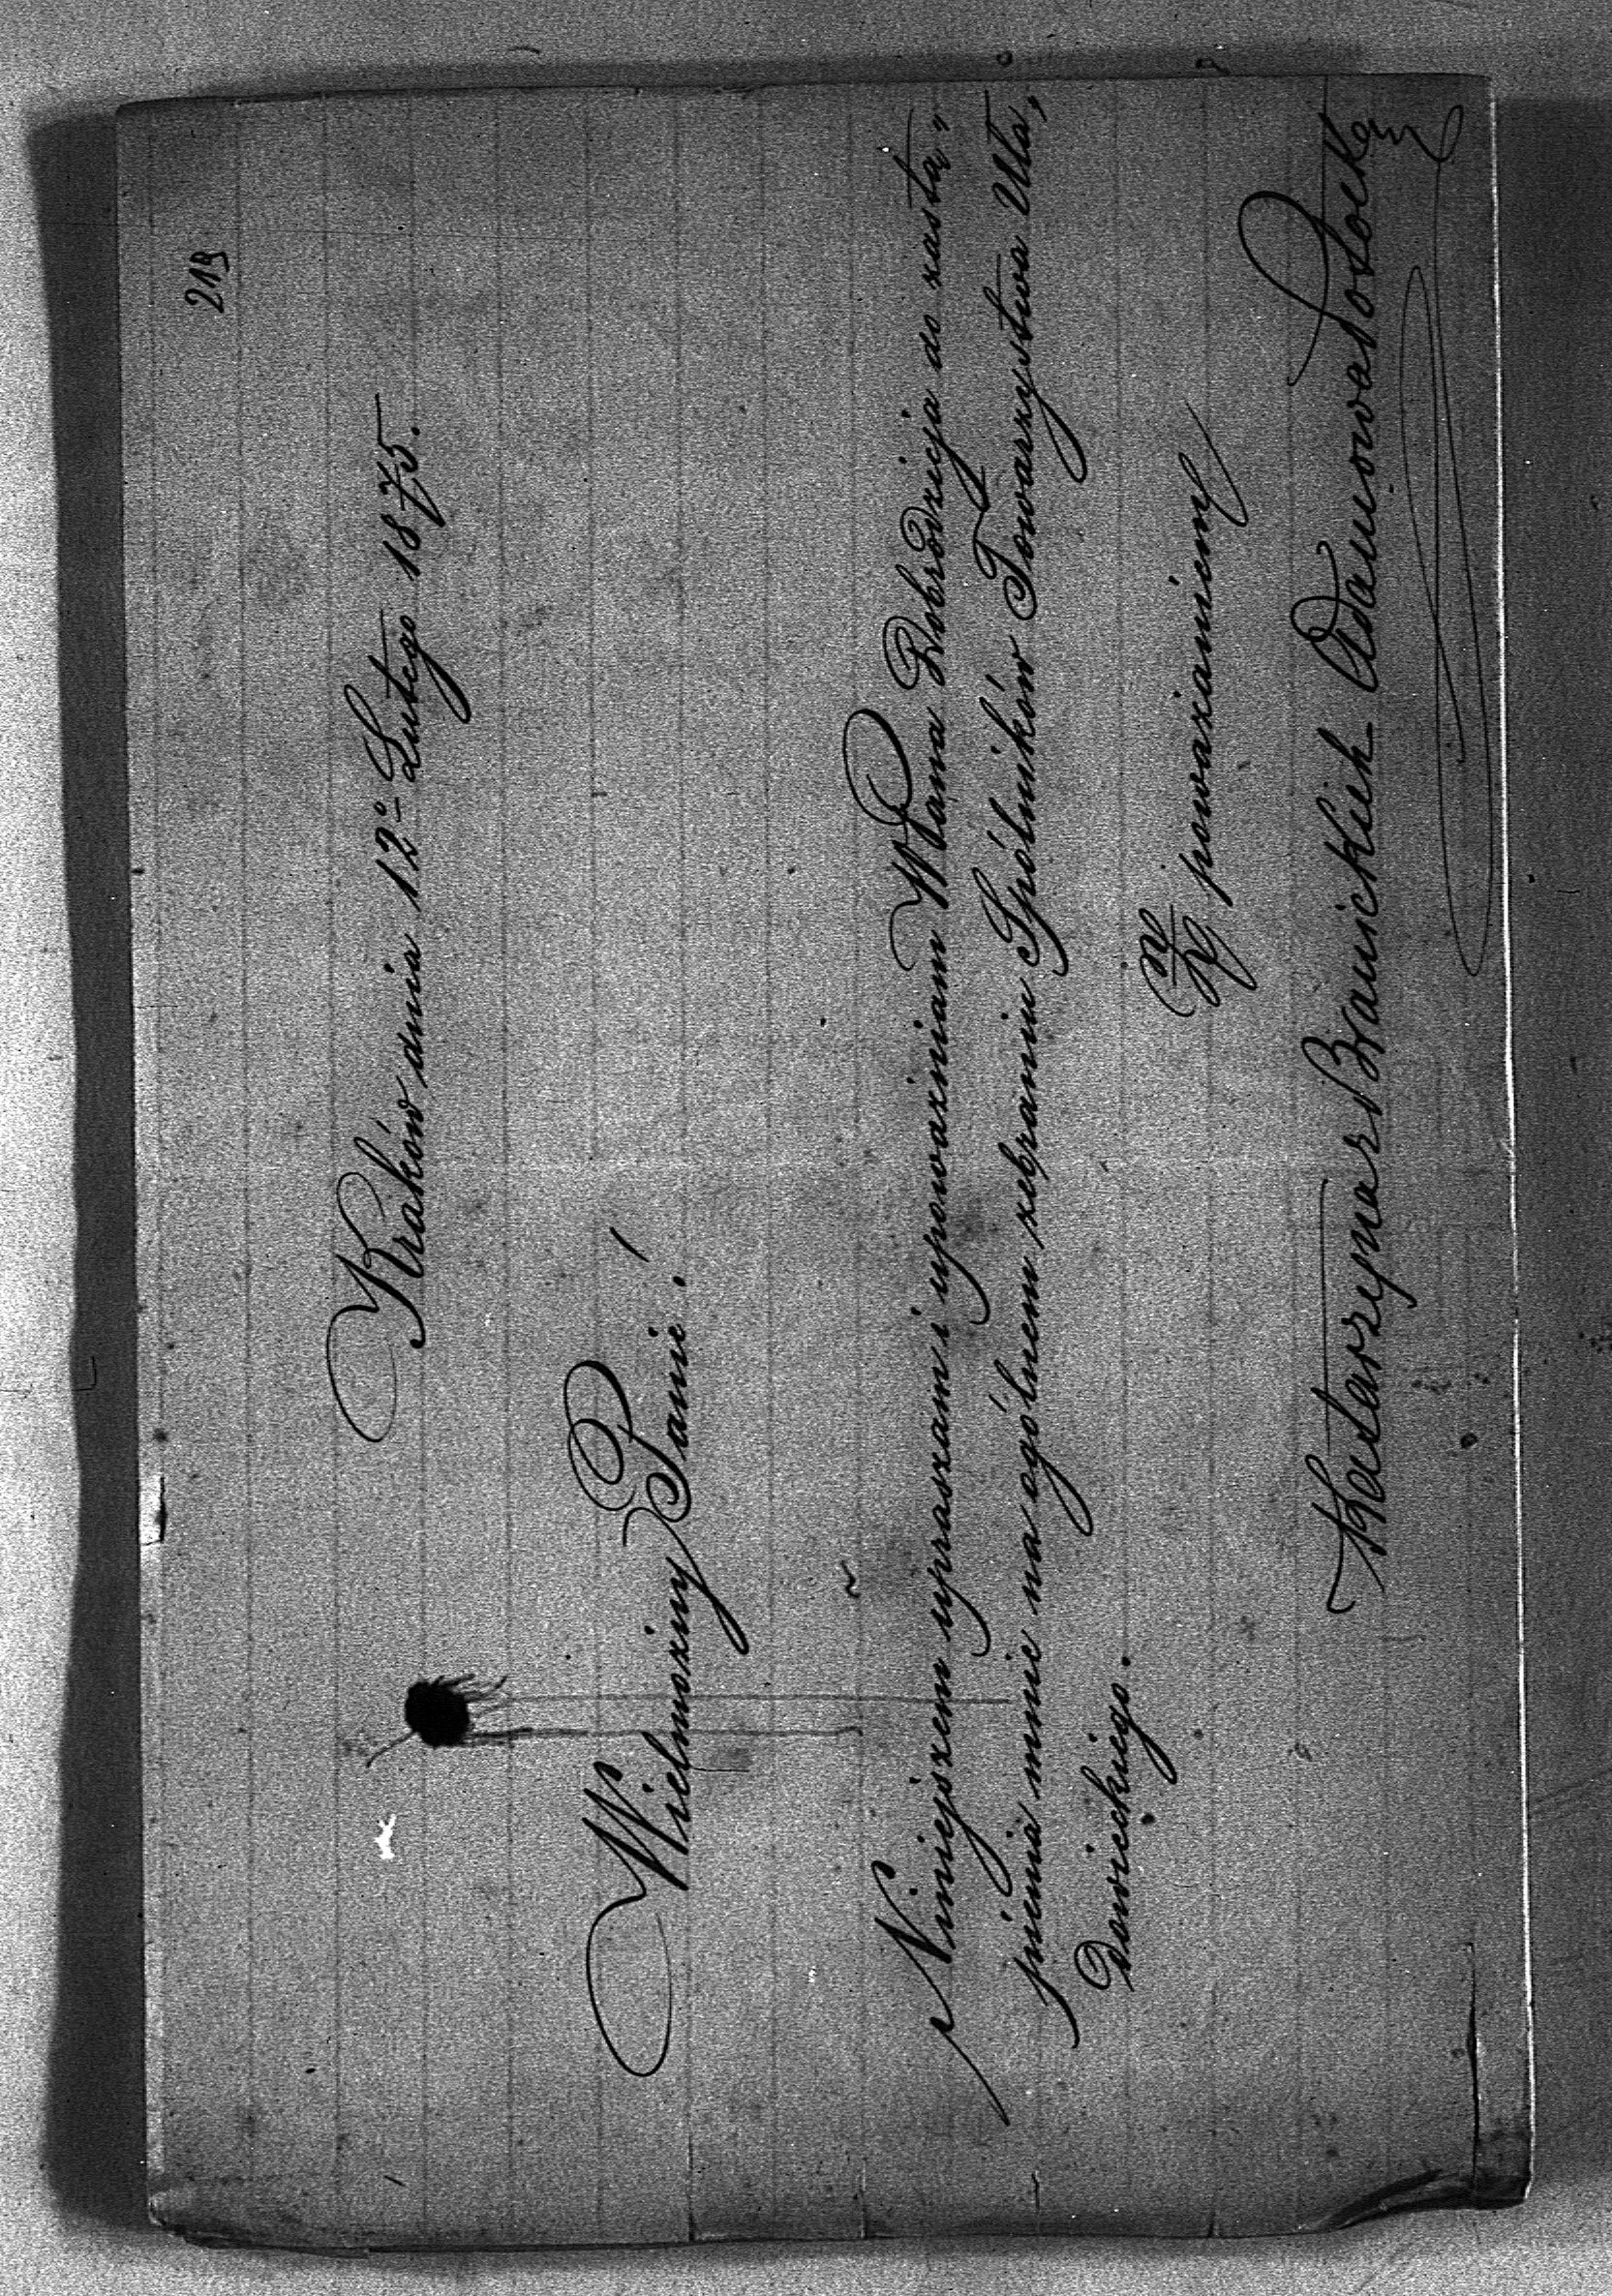 219
Kraków dnia 12º Lutego 1875.
Wielmożny Panie!
Niniejszem upraszam i upoważniam WPana Dobrodzieja do zastą„
pienia mnie na ogólnem zebraniu Spólników Towarzystwa Uła,
Dowieckiego.
Z poważaniem
Katarzyna z Branickich Adamowa Potocka